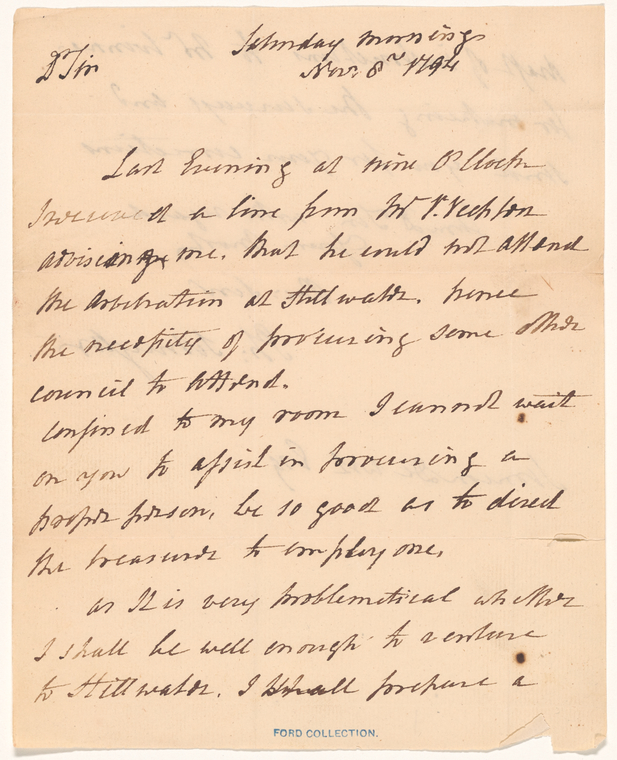 Saturday morning
Dr Sir
Nov: 8th 1794
Last Evening at nine O'Clock
I received a line from Mr V. Vechten
advising me. that he could not attend
the arbitration at Stillwater. hence
the necessity of procuring some other
council to attend.
confined to my room I cannot wait
on you to assist in procuring a
proper person, be so good as to direct
the treasurer to employ one,
as It is very problematical whether
I shall be well enough to venture
to Stillwater. I shall prepare a
FORD COLLECTION.